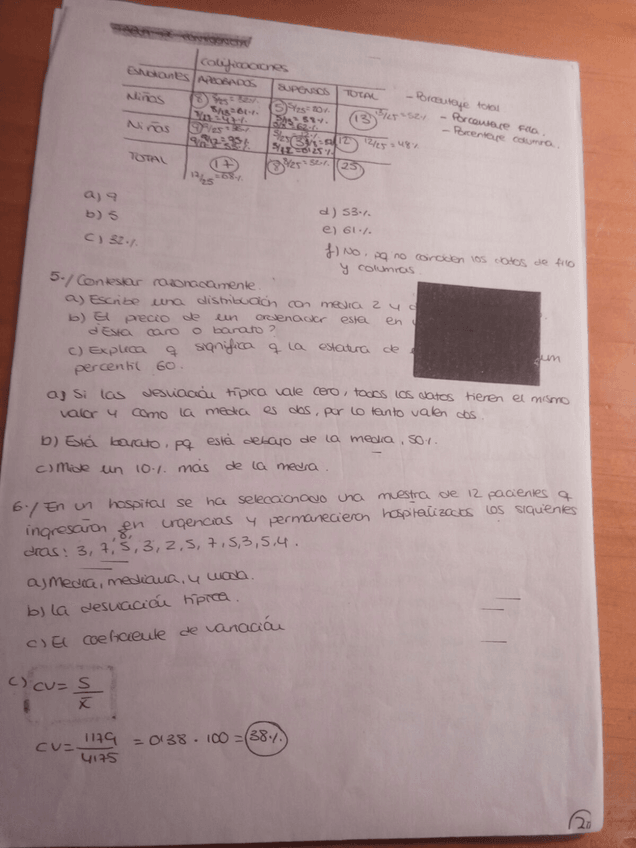 Calificaciones
Estudiantes APROBADOS SUSPENSOS TOTAL
- Porcentaje total
- Porcentaje fila.
- Porcentaje columna.
Niñas 8 8/25=32% 5 5/25=20% 13 13/25=52%
8/13=61%
Niños 12 12/25=48%
TOTAL 17 8 8/25=32% 25
17/25=68%
a) 9
b) 5
c) 32%
d) 53%
e) 61%
f) No, pq no coinciden los datos de fila
y columnas
5./ Contestar razonadamente.
a) Escribe una distribución con media 2 y
b) El precio de un ordenador está en
¿Está caro o barato?
c) Explica q significa q la estatura de un
percentil 60.
a) Si las desviación típica vale cero, todos los datos tienen el mismo
valor y como la media es dos, por lo tanto valen dos.
b) Está barato, pq está debajo de la media, 50%.
c) Mide un 10% más de la media.
6./ En un hospital se ha seleccionado una muestra de 12 pacientes q
ingresaron en urgencias y permanecieron hospitalizados los siguientes
días: 3, 7, 8, 5, 3, 2, 5, 7, 5, 3, 5, 4.
a) Media, mediana, y moda.
b) La desviación típica.
c) El coeficiente de variación
c) CV = S / x̄
CV = 1'79 / 4'75 = 0'38 · 100 = 38%